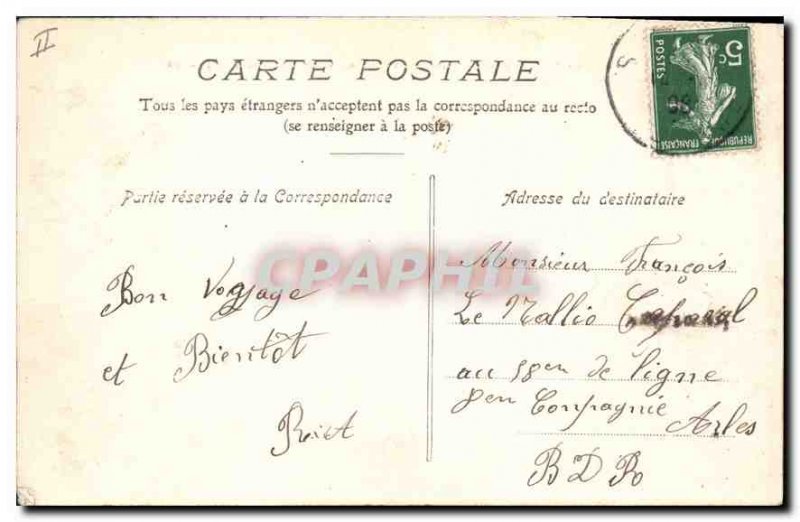 II
CARTE POSTALE
Tous les pays étrangers n'acceptent pas la correspondance au recto
(se renseigner à la poste)
Partie réservée à la Correspondance
Bon Voyage
et Bientôt
Adresse du destinataire
Monsieur François
Le Mallio Caporal
au 58en de ligne
8en Compagnie
Arles
B D R
5c
POSTES
REPUBLIQUE FRANÇAISE
CPAPHIL